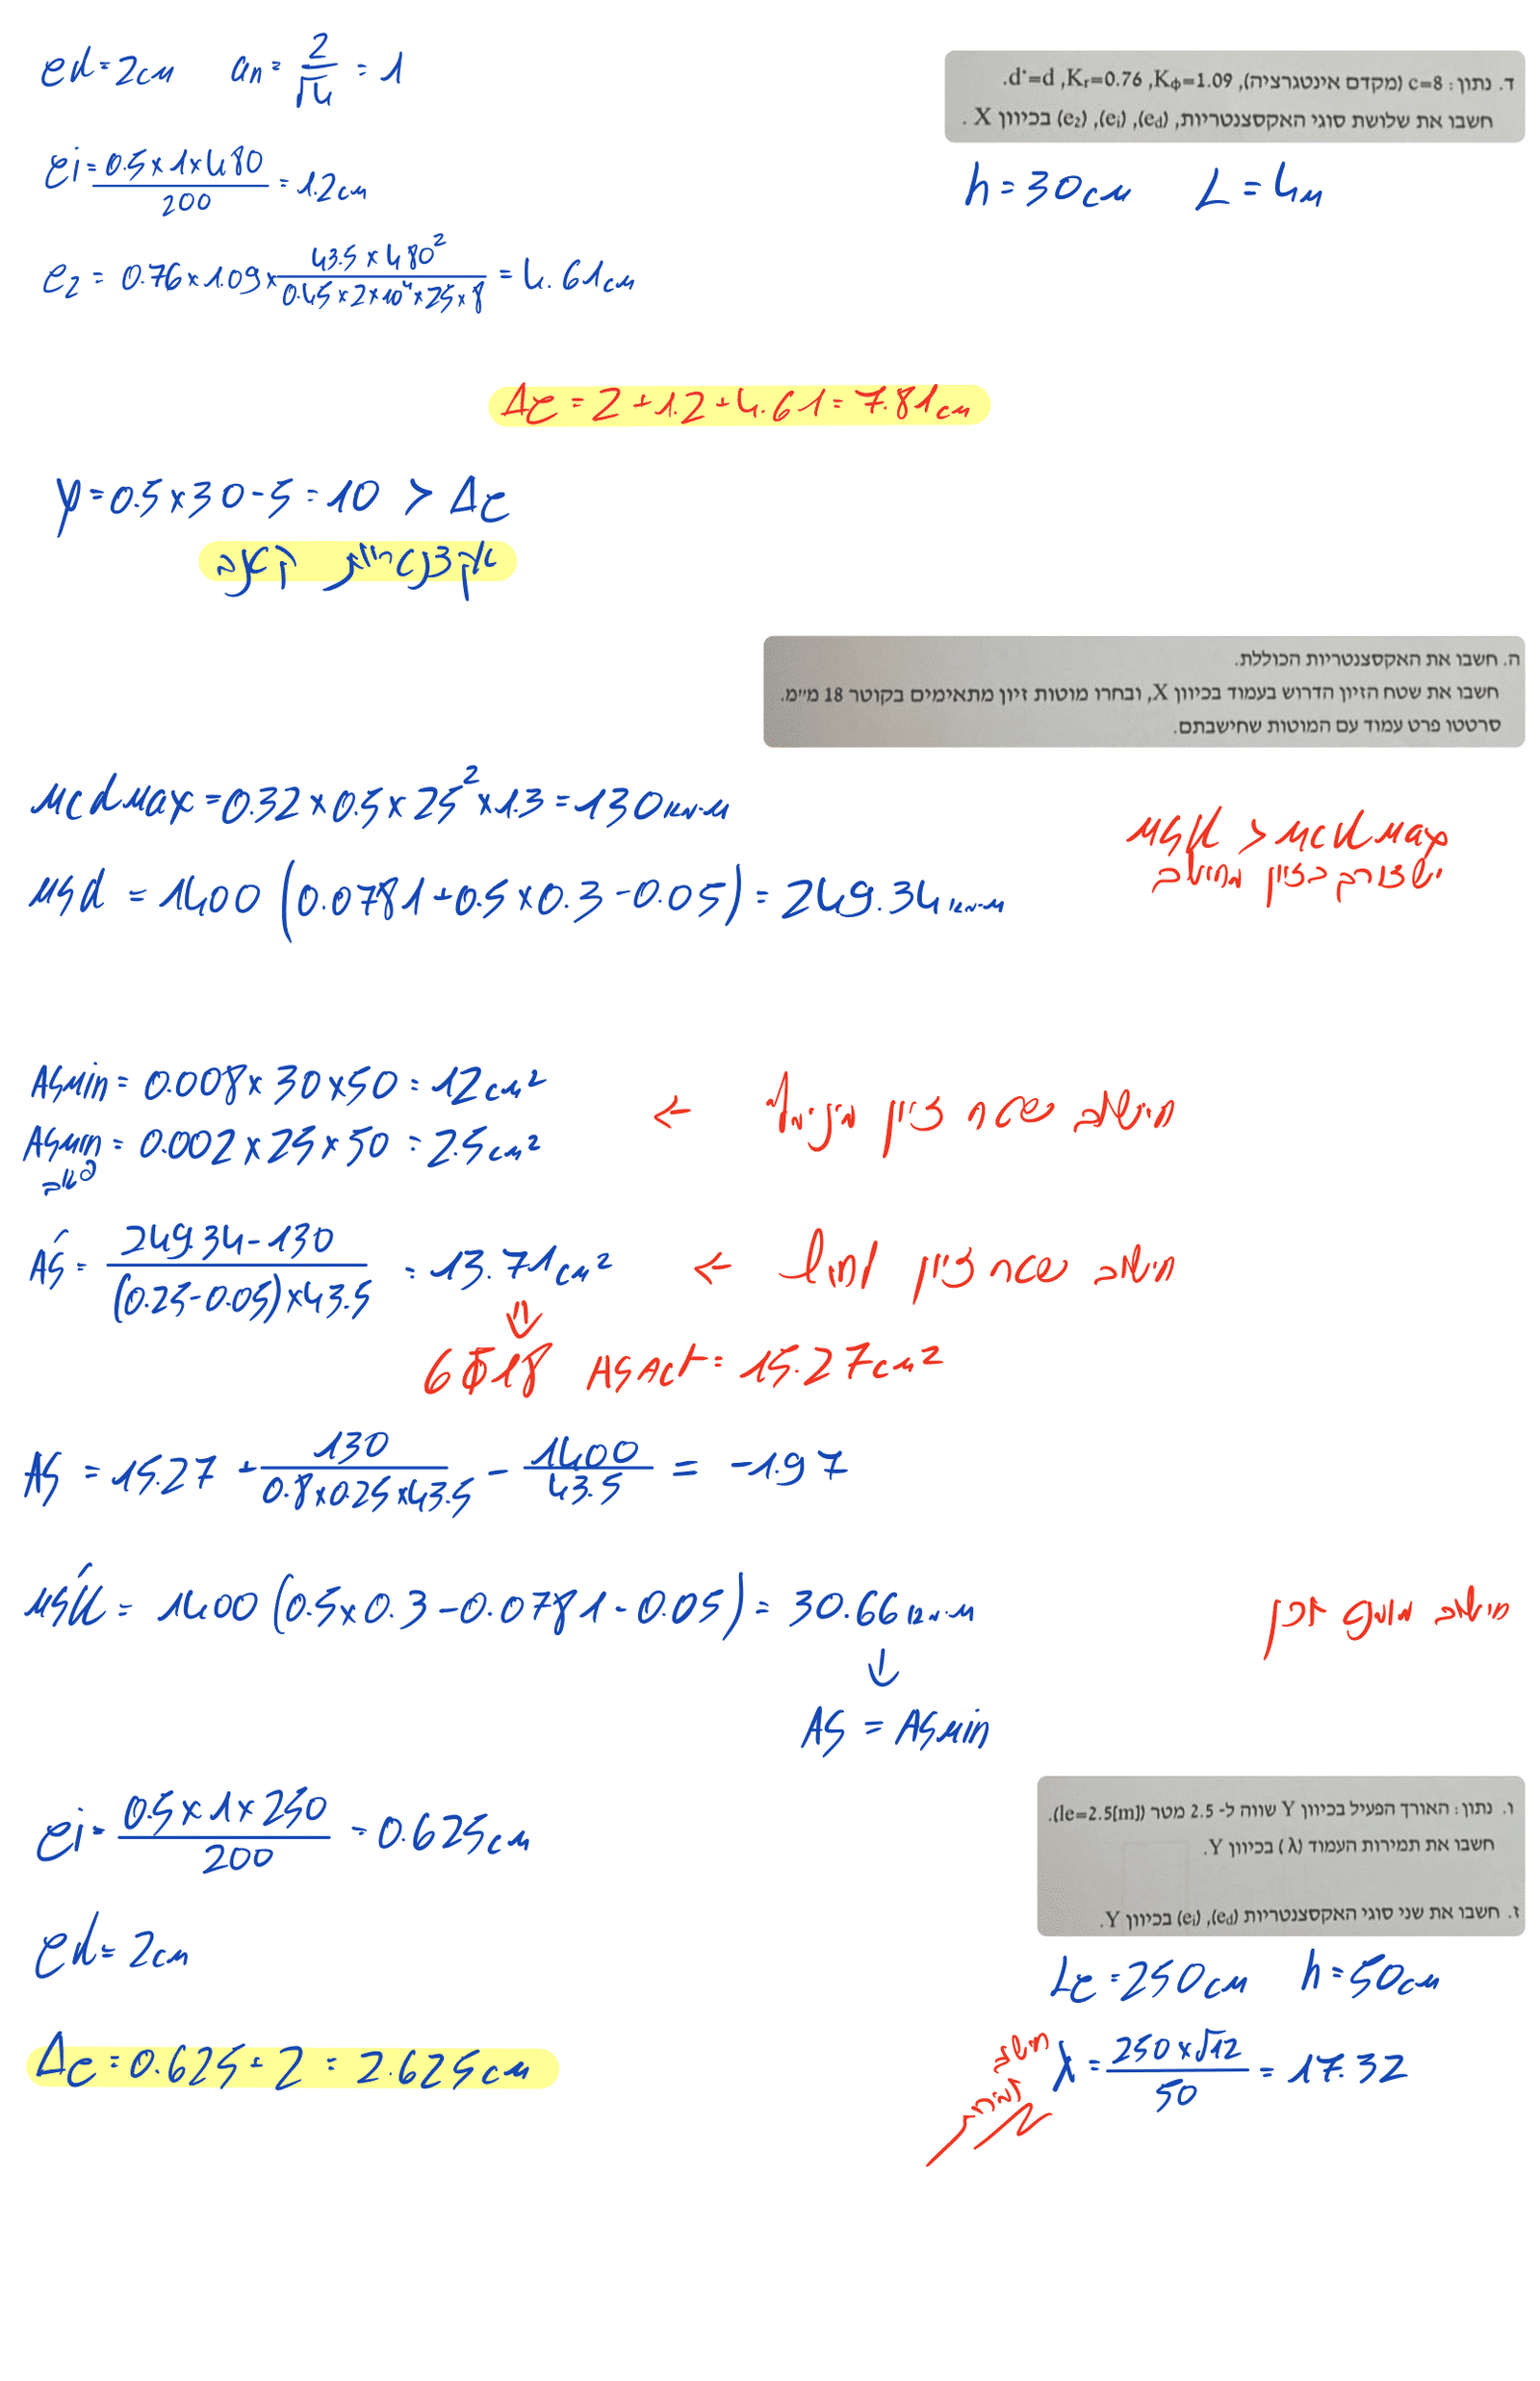 ד. נתון: c=8 (מקדם אינטגרציה), Kϕ=1.09, Kr=0.76, d'=d.
חשבו את שלושת סוגי האקסצנטריות, (ed), (ei), (e2) בכיוון X .
h=30cm L=4m
ed=2cm an=2/√4=1
ei=0.5×1×480/200=1.2cm
e2=0.76×1.09×43.5×480²/0.45×2×10⁴×25×8=4.61cm
Δe=2+1.2+4.61=7.81cm
y=0.5×30-5=10 > Δe
אקצנטריות קטנה
ה. חשבו את האקסצנטריות הכוללת.
חשבו את שטח הזיון הדרוש בעמוד בכיוון X, ובחרו מוטות זיון מתאימים בקוטר 18 מ"מ.
סרטטו פרט עמוד עם המוטות שחישבתם.
Mcdmax=0.32×0.5×25²×1.3=130 קנ·מ
Msd=1400(0.0781+0.5×0.3-0.05)=249.34 קנ·מ
Msd > Mcdmax
יש צורך בזיון מחושב
Asmin=0.008×30×50=12cm²
Asmin=0.002×25×50=2.5cm²
חישוב שטח זיון מינימלי ←
As'=249.34-130/(0.25-0.05)×43.5=13.71cm²
חישוב שטח זיון לחוץ ←
⇓
6Φ18 AsAct=15.27cm²
As=15.27+130/0.8×0.25×43.5-1400/43.5=-1.97
Msd'=1400(0.5×0.3-0.0781-0.05)=30.66 קנ·מ
חישוב מומנט
↓
As=Asmin
ו. נתון: האורך הפעיל בכיוון Y שווה ל- 2.5 מטר (le=2.5[m]).
חשבו את תמירות העמוד (λ) בכיוון Y.
ז. חשבו את שני סוגי האקסצנטריות (ed), (ei) בכיוון Y.
Le=250cm h=50cm
חישוב
תמירות
λ=250×√12/50=17.32
ei=0.5×1×250/200=0.625cm
ed=2cm
Δe=0.625+2=2.625cm